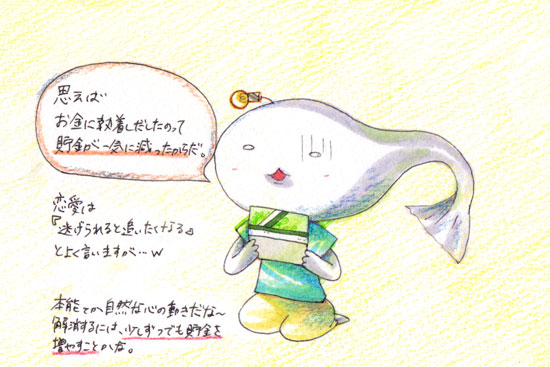 思えば
お金に執着しだしたのって
貯金が一気に減ったからだ。
恋愛は
『逃げられると追いたくなる』
とよく言いますが…w
本能てか自然な心の動きだな〜
解消するには、少しずつでも貯金を
増やすことかな。